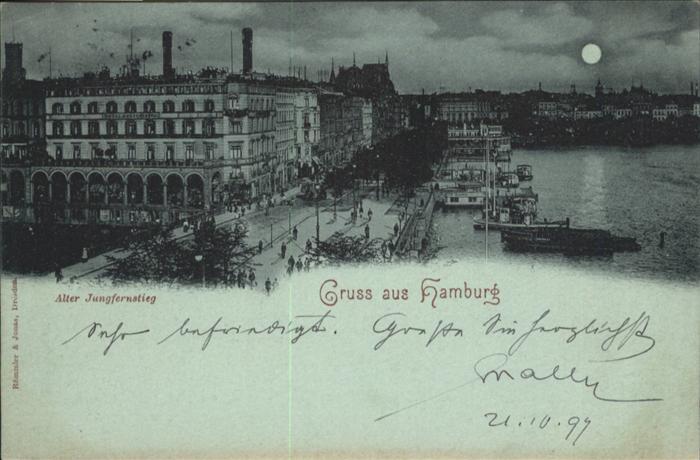 Alter Jungfernstieg
Gruss aus Hamburg
Römmler & Jonas, Dresden
Sehr befriedigt. Grüße Sie herzlichst
Mally
21.10.97